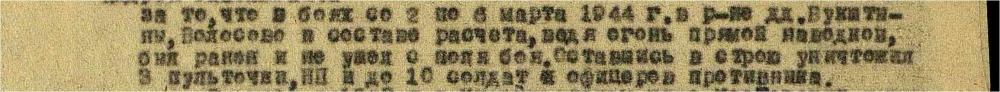 за то, что в боях со 2 по 6 марта 1944 г. в р-не дд. Букати-
ны, Волосово в составе расчета, ведя огонь прямой наводкой,
был ранен и не ушел с поля боя. Оставшись в строю уничтожил
3 пульточки, НП и до 10 солдат и офицеров противника.